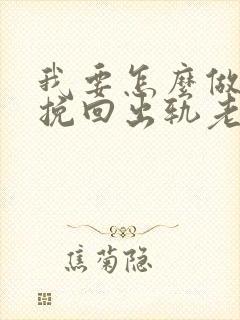 我要怎麼做
挽回出轨老
焦菊隐